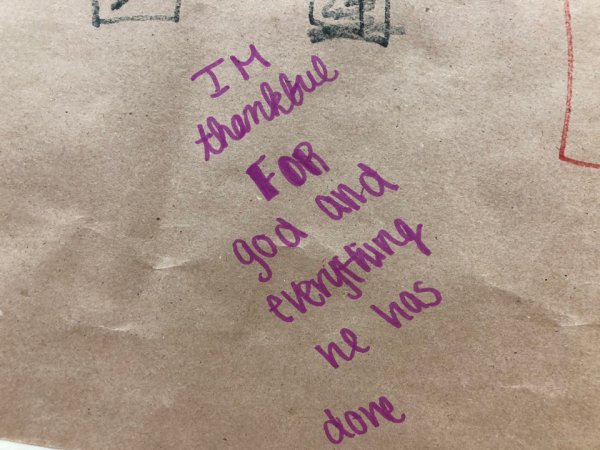 IM
thankful
FOR
god and
everything
he has
done